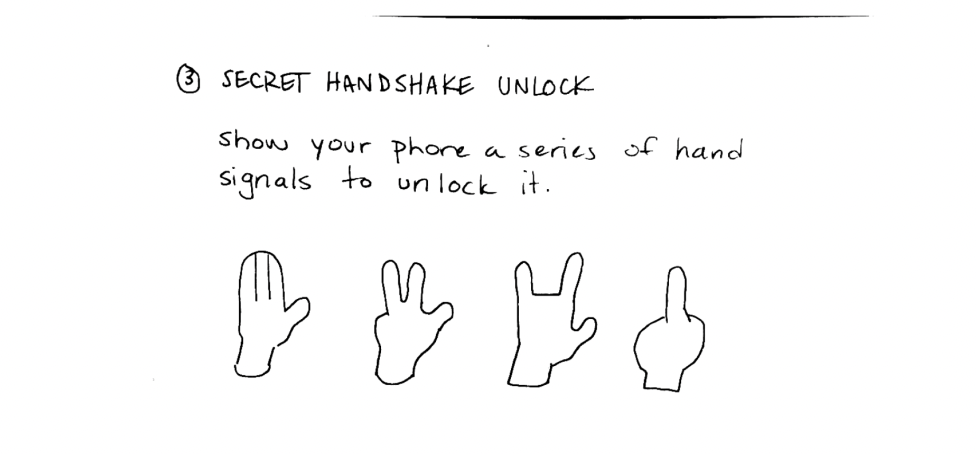 ③ SECRET HANDSHAKE UNLOCK
show your phone a series of hand
signals to unlock it.